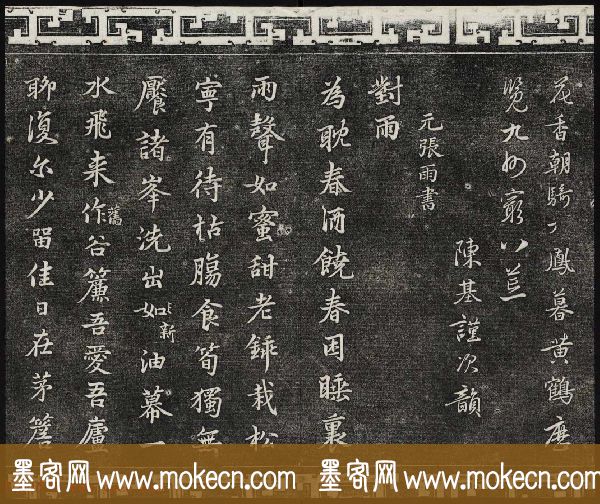 花香朝騎丁鳳暮黄鶴
覽九州窮八荒
陳基謹次韻
元張雨書
對雨
為耽春酒饒春困睡裏
雨聲如蜜甜老録栽松
寧有待枯腸食筍獨無
饜諸峯洗出如新油幕一
水飛来作舊谷簾吾愛吾廬
聊復尓少留佳日在茅簷
墨客网 www.mokecn.com 墨客网 www.mokecn.com